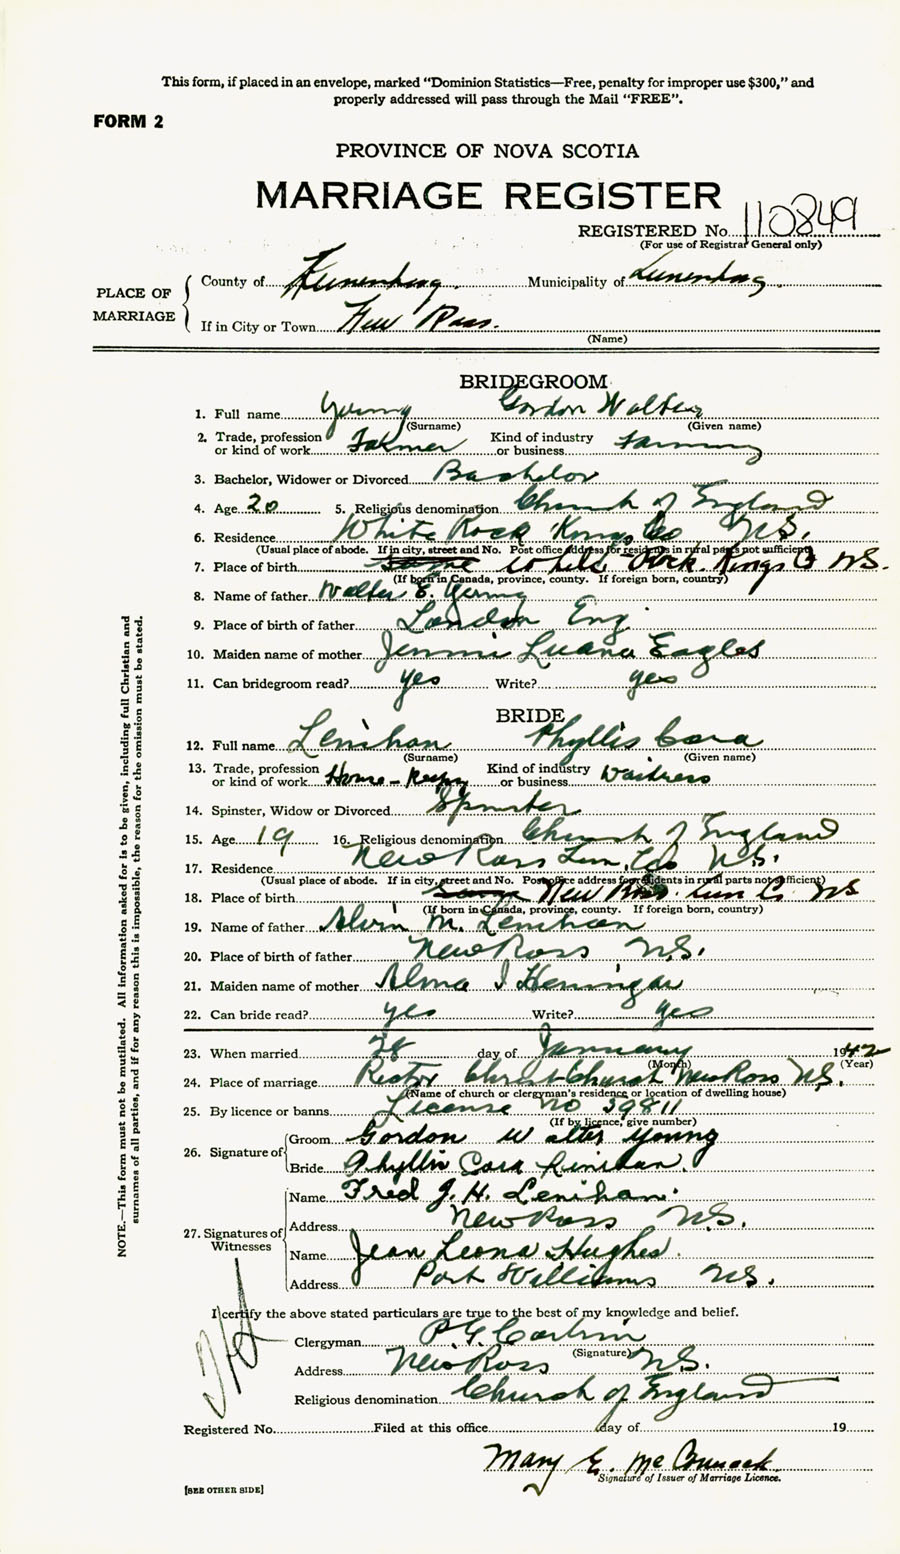 This form, if placed in an envelope, marked “Dominion Statistics—Free, penalty for improper use $300,” and
properly addressed will pass through the Mail “FREE”.
FORM 2
PROVINCE OF NOVA SCOTIA
MARRIAGE REGISTER
REGISTERED No. 110849
(For use of Registrar General only)
PLACE OF MARRIAGE
County of Lunenburg. Municipality of Lunenburg.
If in City or Town New Ross.
(Name)
BRIDEGROOM
1. Full name Young Gordon Walter
(Surname) (Given name)
2. Trade, profession or kind of work Farmer Kind of industry or business Farming
3. Bachelor, Widower or Divorced Bachelor
4. Age 20 5. Religious denomination Church of England
6. Residence White Rock Kings Co N.S.
(Usual place of abode. If in city, street and No. Post office address for residents in rural parts not sufficient)
7. Place of birth same White Rock. Kings Co NS.
(If born in Canada, province, county. If foreign born, country)
8. Name of father Walter E. Young
9. Place of birth of father London Eng.
10. Maiden name of mother Jennie Luana Eagles
11. Can bridegroom read? yes Write? yes
BRIDE
12. Full name Lenihan Phyllis Cora
(Surname) (Given name)
13. Trade, profession or kind of work Home-Keeping Kind of industry or business Waitress
14. Spinster, Widow or Divorced Spinster
15. Age 19 16. Religious denomination Church of England
17. Residence New Ross Lun. Co N.S.
(Usual place of abode. If in city, street and No. Post office address for residents in rural parts not sufficient)
18. Place of birth same New Ross. Lun Co. NS
(If born in Canada, province, county. If foreign born, country)
19. Name of father Alvin M. Lenihan
20. Place of birth of father New Ross N.S.
21. Maiden name of mother Alma I Hennigar
22. Can bride read? yes Write? yes
23. When married 28 day of January 1942
(Month) (Year)
24. Place of marriage Rectory Christ Church New Ross N.S.
(Name of church or clergyman's residence or location of dwelling house)
25. By licence or banns License no 39811
(If by licence, give number)
26. Signature of Groom Gordon Walter Young
Bride Phyllis Cora Lenihan.
27. Signatures of Witnesses
Name Fred J. H. Lenihan.
Address New Ross N.S.
Name Jean Leona Hughes.
Address Port Williams N.S.
I certify the above stated particulars are true to the best of my knowledge and belief.
Clergyman P. G.
(Signature)
Address New Ross N.S.
Religious denomination Church of England
Registered No. Filed at this office day of 19
Mary E.
Signature of Issuer of Marriage Licence.
[SEE OTHER SIDE]
NOTE.—This form must not be mutilated. All information asked for is to be given, including full Christian and
surnames of all parties, and if for any reason this is impossible, the reason for the omission must be stated.